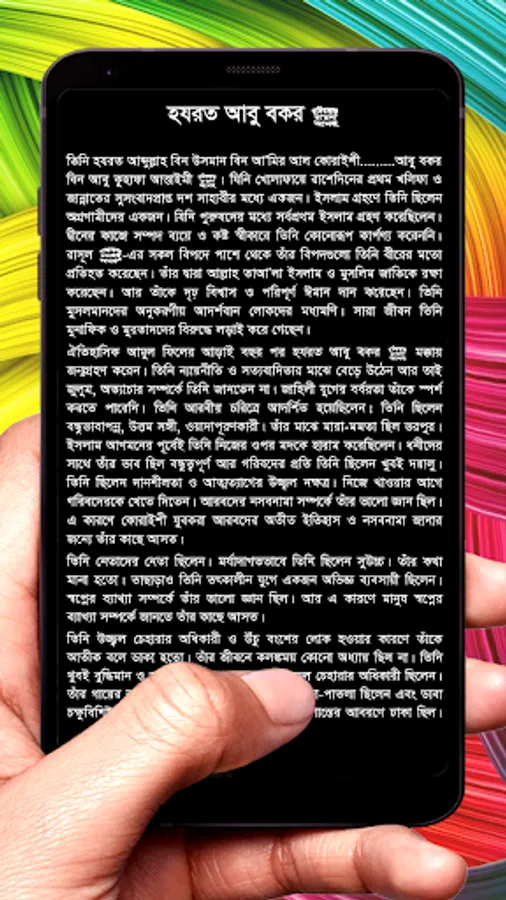 হযরত আবু বকর
তিনি হযরত আব্দুল্লাহ বিন উসমান বিন আ'মির আল কোরাইশী..........আবু বকর
বিন আবু কুহাফা আত্তাইমী । যিনি খোলাফায়ে রাশেদিনের প্রথম খলিফা ও
জান্নাতের সুসংবাদপ্রাপ্ত দশ সাহাবীর মধ্যে একজন। ইসলাম গ্রহণে তিনি ছিলেন
অগ্রগামীদের একজন। যিনি পুরুষদের মধ্যে সর্বপ্রথম ইসলাম গ্রহণ করেছিলেন।
দ্বীনের কাজে সম্পদ ব্যয়ে ও কষ্ট স্বীকারে তিনি কোনোরূপ কার্পণ্য করেননি।
রাসূল -এর সকল বিপদে পাশে থেকে তাঁর বিপদগুলো তিনি বীরের মতো
প্রতিহত করেছেন। তাঁর দ্বারা আল্লাহ তাআ'লা ইসলাম ও মুসলিম জাতিকে রক্ষা
করেছেন। আর তাঁকে দৃঢ় বিশ্বাস ও পরিপূর্ণ ঈমান দান করেছেন। তিনি
মুসলমানদের অনুকরণীয় আদর্শবান লোকদের মধ্যমণি। সারা জীবন তিনি
মুনাফিক ও মুরতাদদের বিরুদ্ধে লড়াই করে গেছেন।
ঐতিহাসিক আমুল ফিলের আড়াই বছর পর হযরত আবু বকর মক্কায়
জন্মগ্রহণ করেন। তিনি ন্যায়নীতি ও সত্যবাদিতার মাঝে বেড়ে উঠেন আর তাই
জুলুম, অত্যাচার সম্পর্কে তিনি জানতেন না। জাহিলী যুগের বর্বরতা তাঁকে স্পর্শ
করতে পারেনি। তিনি আরবীয় চরিত্রে আদর্শিত হয়েছিলেন। তিনি ছিলেন
বন্ধুভাবাপন্ন, উত্তম সঙ্গী, ওয়াদাপূরণকারী। তাঁর মাঝে মায়া-মমতা ছিল ভরপুর।
ইসলাম আগমনের পূর্বেই তিনি নিজের ওপর মদকে হারাম করেছিলেন। ধনীদের
সাথে তাঁর ভাব ছিল বন্ধুত্বপূর্ণ আর গরিবদের প্রতি তিনি ছিলেন খুবই দয়ালু।
তিনি ছিলেন দানশীলতা ও আত্মত্যাগের উজ্জ্বল নক্ষত্র। নিজে খাওয়ার আগে
গরিবদেরকে খেতে দিতেন। আরবদের নসবনামা সম্পর্কে তাঁর ভালো জ্ঞান ছিল।
এ কারণে কোরাইশী যুবকরা আরবদের অতীত ইতিহাস ও নসবনামা জানার
জন্যে তাঁর কাছে আসত।
তিনি নেতাদের নেতা ছিলেন। মর্যাদাগতভাবে তিনি ছিলেন সুউচ্চ। তাঁর কথা
মানা হতো। তাছাড়াও তিনি তৎকালীন যুগে একজন অভিজ্ঞ ব্যবসায়ী ছিলেন।
স্বপ্নের ব্যাখ্যা সম্পর্কে তাঁর ভালো জ্ঞান ছিল। আর এ কারণে মানুষ স্বপ্নের
ব্যাখ্যা সম্পর্কে জানতে তাঁর কাছে আসত।
তিনি উজ্জ্বল চেহারার অধিকারী ও উঁচু বংশের লোক হওয়ার কারণে তাঁকে
আতীক বলে ডাকা হতো। তাঁর জীবনে কলঙ্কময় কোনো অধ্যায় ছিল না। তিনি
খুবই বুদ্ধিমান ও চেহারার অধিকারী ছিলেন।
তাঁর গায়ের -পাতলা ছিলেন এবং ভাবা
আবরণে ঢাকা ছিল।